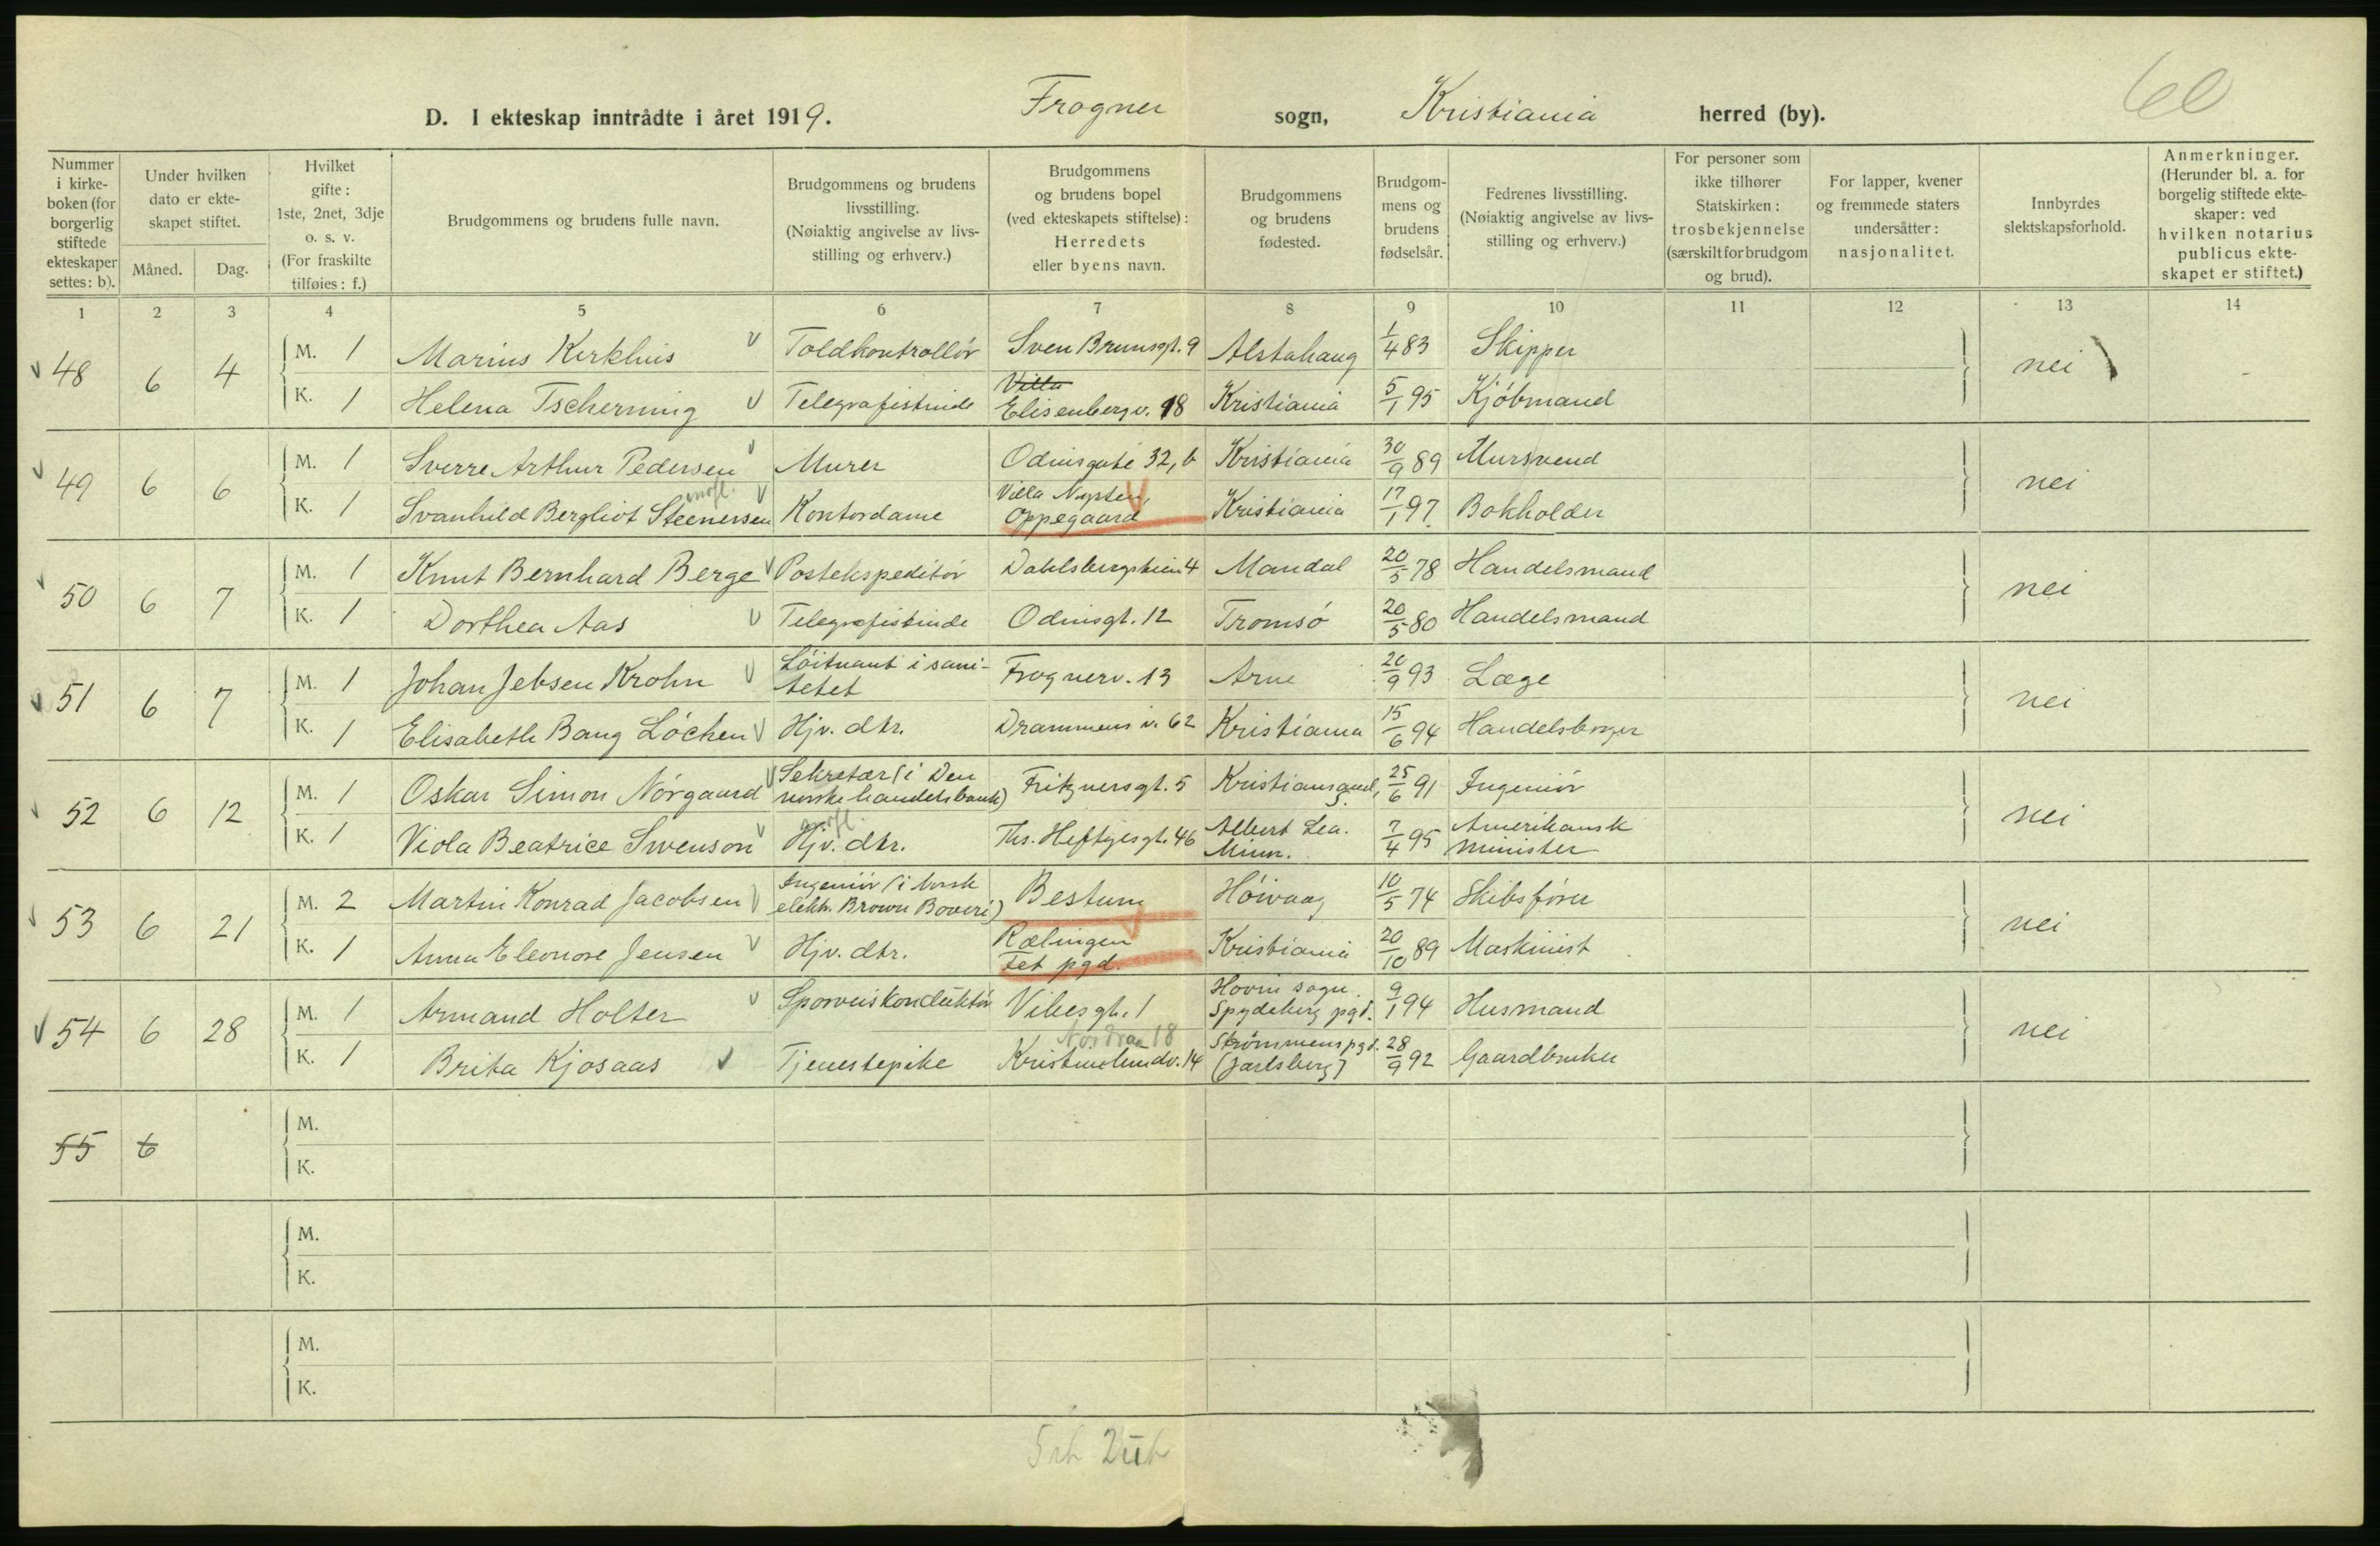 60
D. I ekteskap inntrådte i året 1919. Frogner sogn, Kristiania herred (by).
Nummer i kirkeboken (for borgerlig stiftede ekteskaper settes: b).
Under hvilken dato er ekteskapet stiftet.
Måned. Dag.
Hvilket gifte: 1ste, 2net, 3dje o. s. v. (For fraskilte tilføies: f.)
Brudgommens og brudens fulle navn.
Brudgommens og brudens livsstilling. (Nøiaktig angivelse av livsstilling og erhverv.)
Brudgommens og brudens bopel (ved ekteskapets stiftelse): Herredets eller byens navn.
Brudgommens og brudens fødested.
Brudgommens og brudens fødselsår.
Fedrenes livsstilling. (Nøiaktig angivelse av livsstilling og erhverv.)
For personer som ikke tilhører Statskirken: trosbekjennelse (særskilt for brudgom og brud).
For lapper, kvener og fremmede staters undersåtter: nasjonalitet.
Innbyrdes slektskapsforhold.
Anmerkninger. (Herunder bl. a. for borgelig stiftede ekteskaper: ved hvilken notarius publicus ekteskapet er stiftet.)
1 2 3 4 5 6 7 8 9 10 11 12 13 14
48 6 4 M. 1 Marius Kirkhus Toldkontrollör Sven Brunsgt. 9 Alstahaug 1/4 83 Skipper nei
K. 1 Helena Tscherning Telegrafistinde Villa Elisenbergv. 18 Kristiania 5/1 95 Kjöbmand
49 6 6 M. 1 Sverre Arthur Pedersen Murer Odinsgate 32, b Kristiania 30/9 89 Mursvend nei
K. 1 Svanhild Bergliot Steenersen Kontordame Villa Oppegaard Kristiania 17/1 97. Bokholder
50 6 7 M. 1 Knut Bernhard Berge Postekspeditör Dahlsbergstien 4 Mandal 20/5 78 Handelsmand nei
K. 1 Dorthea Aas Telegrafistinde Odinsgt. 12 Tromsö 20/5 80 Handelsmand
51 6 7 M. 1 Johan Jebsen Krohn Löitnant i sanitetet Frognerv. 13 Arne 20/9 93 Læge nei
K. 1 Elisabeth Bang Löchen Hjv. dtr. Drammens v. 62 Kristiania 15/6 94 Handelsborger
52 6 12 M. 1 Oskar Simon Nörgaard Sekretær (i Den norske handelsbank) Fritznersgt. 5 Kristiansand S. 25/6 91 Ingeniör nei
K. 1 Viola Beatrice Swenson Hjv. dtr. Ths. Heftyesgt. 46 Albert Lea. Minn. 7/4 95 Amerikansk minister
53 6 21 M. 2 Martin Konrad Jacobsen Ingeniör (i norsk elektr. Brown Boveri) Bestum Höivaag 10/5 74 Skibsförer nei
K. 1 Anna Eleonore Jensen Hjv. dtr. Rælingen Fet pgd. Kristiania 20/10 89 Maskinist
54 6 28 M. 1 Armand Holter Sporveiskonduktör Vibesgt. 1 Hovin sogn Spydeberg pgd. 9/1 94 Husmand nei
K. 1 Brita Kjosaas Tjenestepike Nordraa 18 Kristinelundv. 14 Strömmens pgd. (Jarlsberg) 28/9 92 Gaardbruker
55 6 M.
K.
M.
K.
M.
K.